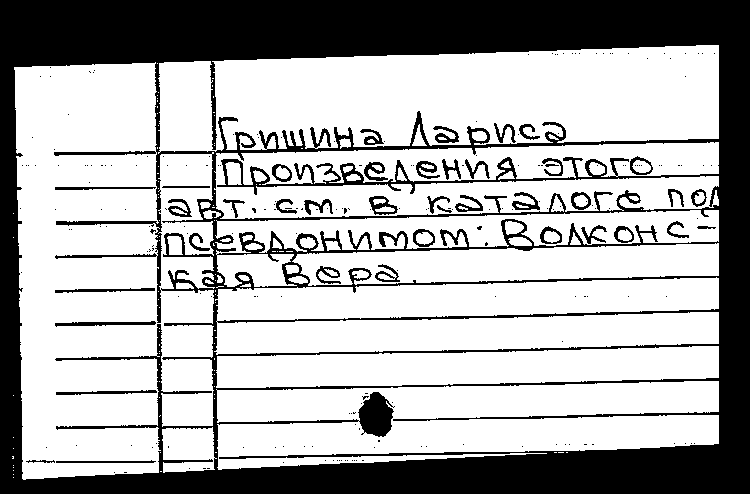 Гришина Лариса
Произведения этого
авт. см. в каталоге под
псевдонимом: Волконс-
кая Вера.